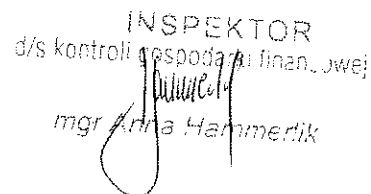 INSPEKTOR
d/s kontroli gospodarki finansowej
mgr Anna Hammerlik